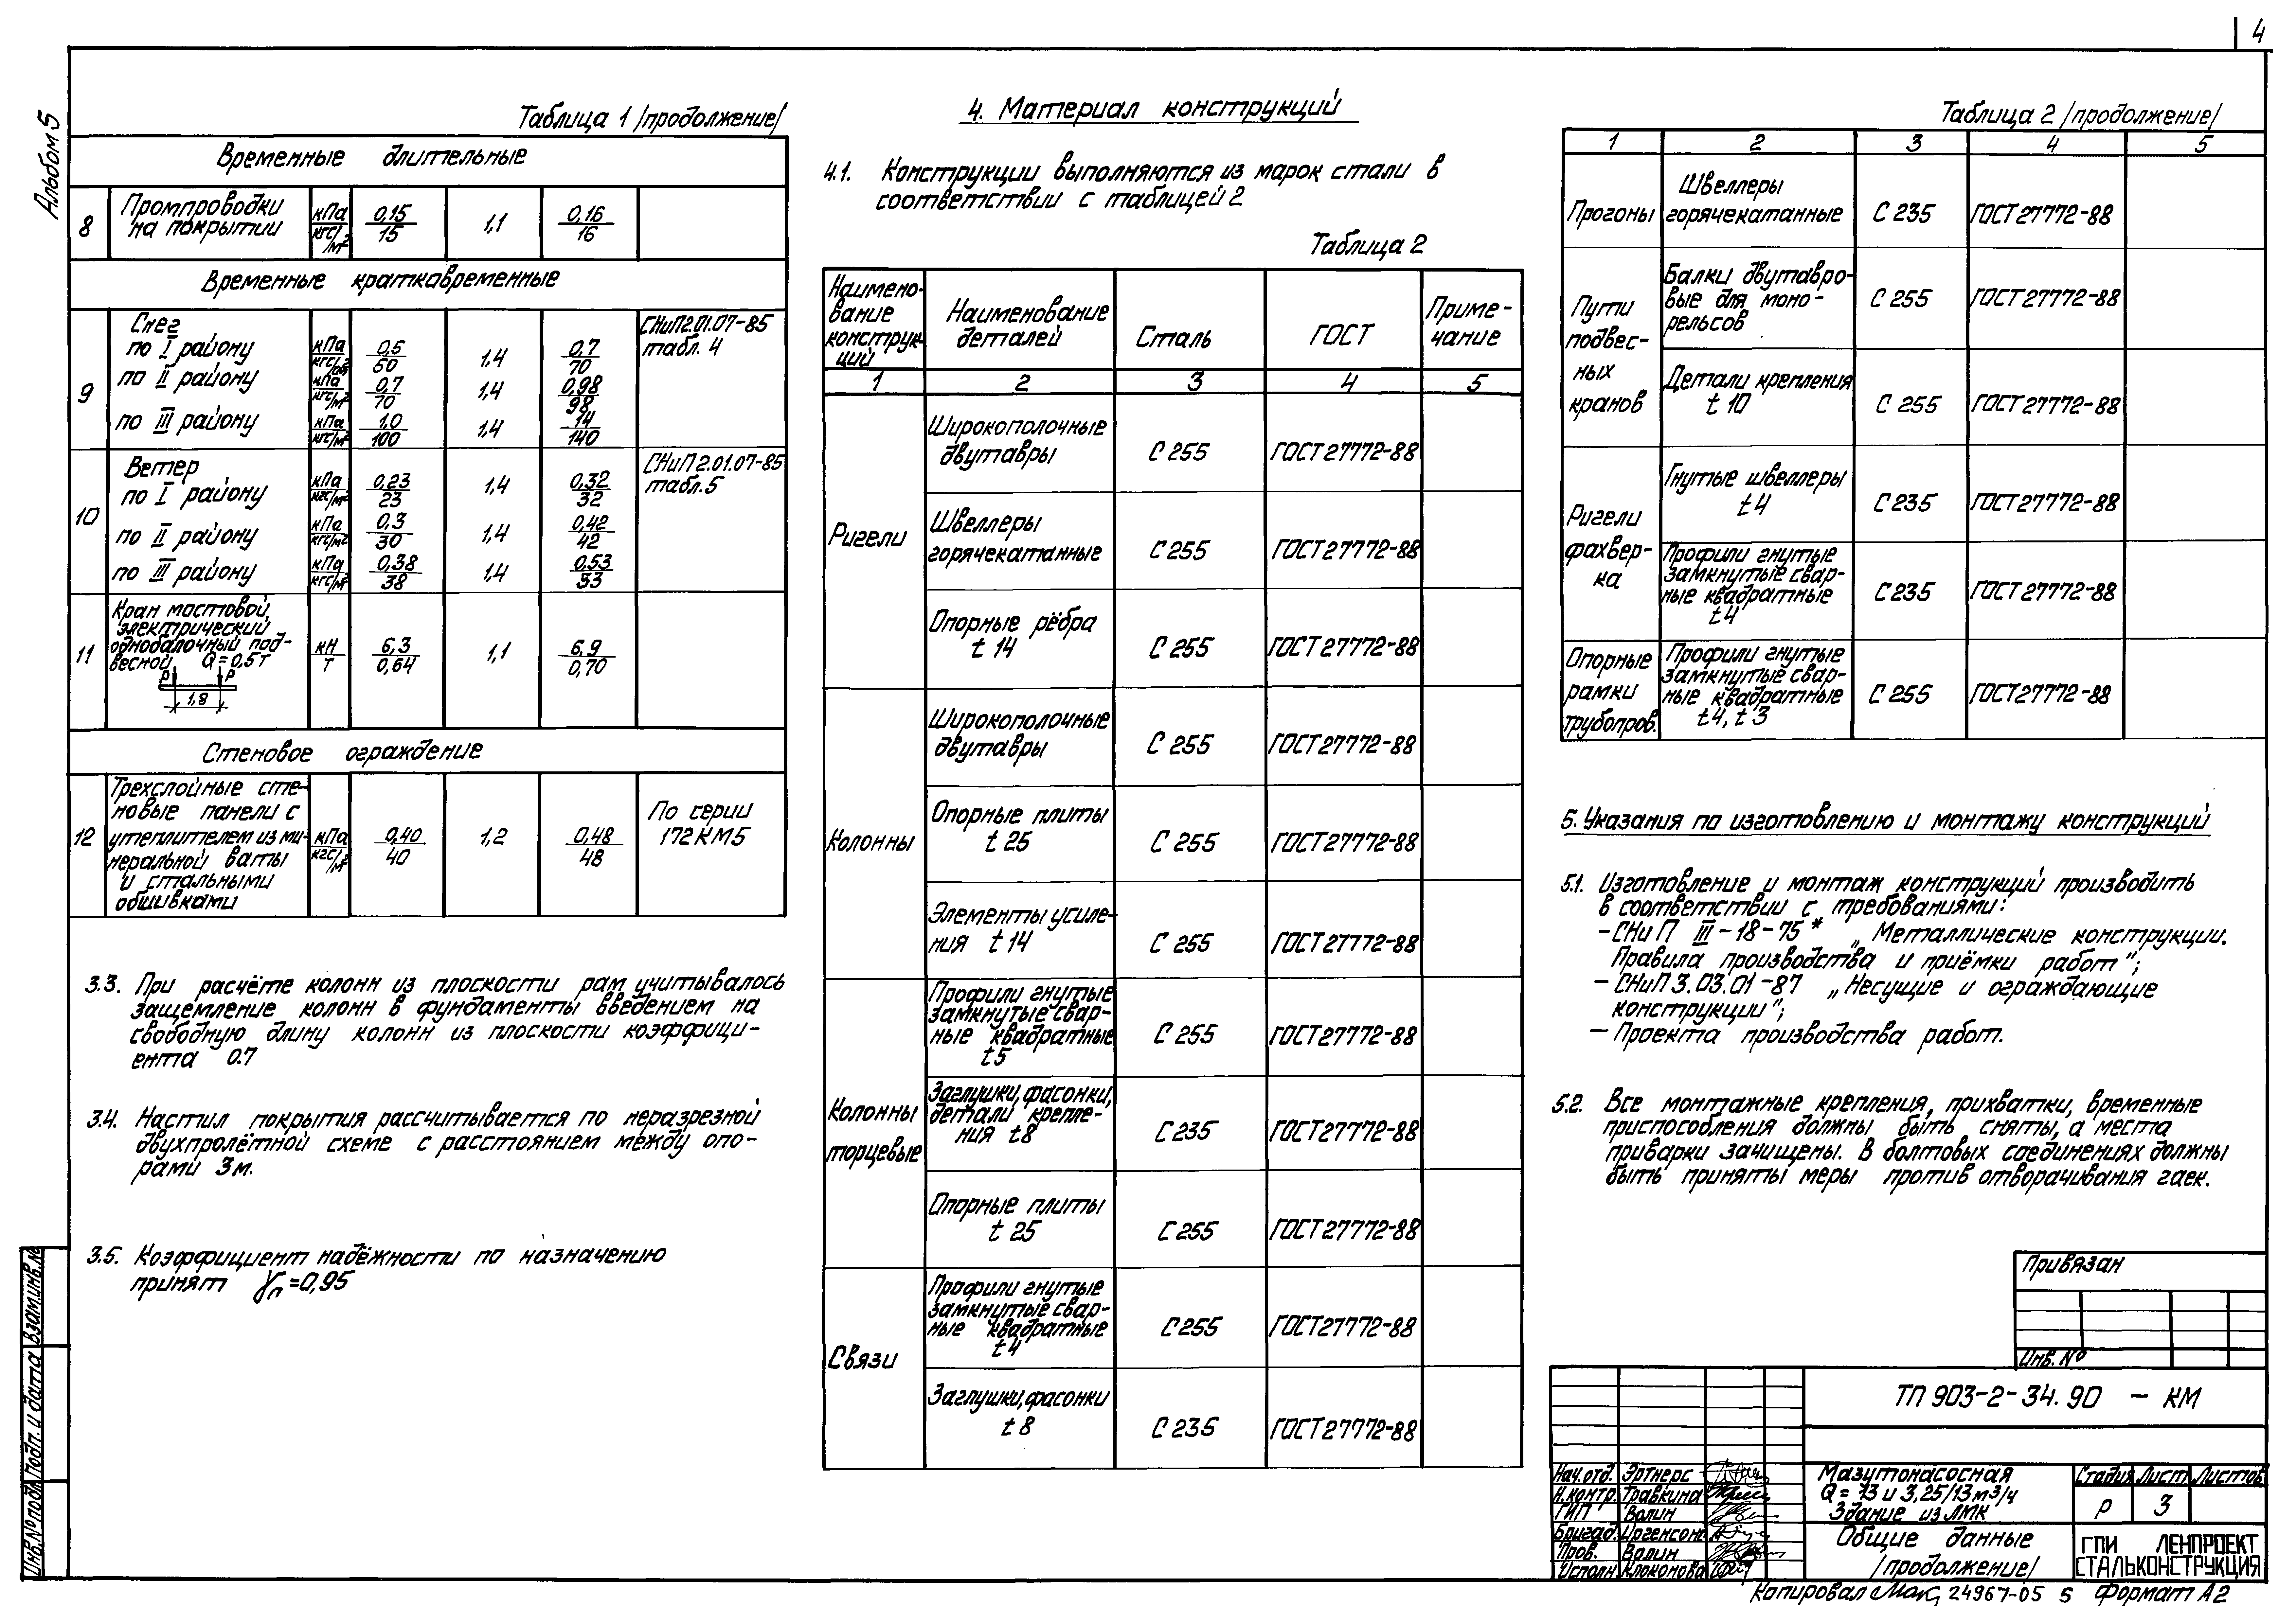 4
Альбом 5
Таблица 1 /продолжение/
Временные длительные
8 Промпроводки на покрытии кПа кгс/м² 0,15 15 1,1 0,16 16
Временные кратковременные
9 Снег СНиП 2.01.07-85 табл. 4
по I району кПа кгс/м² 0,5 50 1,4 0,7 70
по II району кПа кгс/м² 0,7 70 1,4 0,98 98
по III району кПа кгс/м² 1,0 100 1,4 14 140
10 Ветер СНиП 2.01.07-85 табл. 5
по I району кПа кгс/м² 0,23 23 1,4 0,32 32
по II району кПа кгс/м² 0,3 30 1,4 0,42 42
по III району кПа кгс/м² 0,38 38 1,4 0,53 53
11 Кран мостовой,
электрический
однобалочный под-
весной Q = 0,5т кН т 6,3 0,64 1,1 6,9 0,70
P P
1,8
Стеновое ограждение
12 Трехслойные сте-
новые панели с
утеплителем из ми-
неральной ваты
и стальными
обшивками
кПа кгс/м² 0,40 40 1,2 0,48 48 По серии 172КМ5
3.3. При расчёте колонн из плоскости рам учитывалось
защемление колонн в фундаменты введением на
свободную длину колонн из плоскости коэффици-
ента 0.7
3.4. Настил покрытия рассчитывается по неразрезной
двухпролётной схеме с расстоянием между опо-
рами 3м.
3.5. Коэффициент надёжности по назначению
принят γп=0,95
4. Материал конструкций
4.1. Конструкции выполняются из марок стали в
соответствии с таблицей 2
Таблица 2
Наимено-
вание
конструк-
ций
Наименование
деталей
Сталь
ГОСТ
Приме-
чание
1 2 3 4 5
Ригели
Широкополочные двутавры С 255 ГОСТ 27772-88
Швеллеры горячекатанные С 255 ГОСТ 27772-88
Опорные рёбра t 14 С 255 ГОСТ 27772-88
Колонны
Широкополочные двутавры С 255 ГОСТ 27772-88
Опорные плиты t 25 С 255 ГОСТ 27772-88
Элементы усиле-
ния t 14 С 255 ГОСТ 27772-88
Колонны торцевые
Профили гнутые
замкнутые свар-
ные квадратные
t5 С 255 ГОСТ 27772-88
Заглушки, фасонки,
детали крепле-
ния t8 С 235 ГОСТ 27772-88
Опорные плиты t 25 С 255 ГОСТ 27772-88
Связи
Профили гнутые
замкнутые свар-
ные квадратные
t4 С 255 ГОСТ 27772-88
Заглушки, фасонки t 8 С 235 ГОСТ 27772-88
Таблица 2 /продолжение/
1 2 3 4 5
Прогоны Швеллеры горячекатанные С 235 ГОСТ 27772-88
Пути
подвес-
ных
кранов
Балки двутавро-
вые для моно-
рельсов С 255 ГОСТ 27772-88
Детали крепления t 10 С 255 ГОСТ 27772-88
Ригели
фахвер-
ка
Гнутые швеллеры t4 С 235 ГОСТ 27772-88
Профили гнутые
замкнутые свар-
ные квадратные
t4 С 235 ГОСТ 27772-88
Опорные
рамки
трубопров.
Профили гнутые
замкнутые свар-
ные квадратные
t4, t 3 С 255 ГОСТ 27772-88
5. Указания по изготовлению и монтажу конструкций
5.1. Изготовление и монтаж конструкций производить
в соответствии с требованиями:
- СНиП III-18-75* „Металлические конструкции.
Правила производства и приёмки работ";
- СНиП 3.03.01-87 „Несущие и ограждающие
конструкции";
- Проекта производства работ.
5.2. Все монтажные крепления, прихватки, временные
приспособления должны быть сняты, а места
приварки зачищены. В болтовых соединениях должны
быть приняты меры против отворачивания гаек.
Привязан
Инв. №
ТП 903-2-34.90 - КМ
Нач.отд. Эртнерс
Н.контр. Травкина
ГИП Валин
Бригад. Иргенсон
Пров. Валин
Исполн. Клоконова
Мазутонасосная
Q = 13 и 3,25/13 м³/ч
Здание из ЛМК
Стадия Лист Листов
Р 3
Общие данные
/продолжение/
ГПИ ЛЕНПРОЕКТ
СТАЛЬКОНСТРУКЦИЯ
Копировал 24967-05 5 Формат А2
Инв.№ подл. Подп. и дата Взам.инв.№